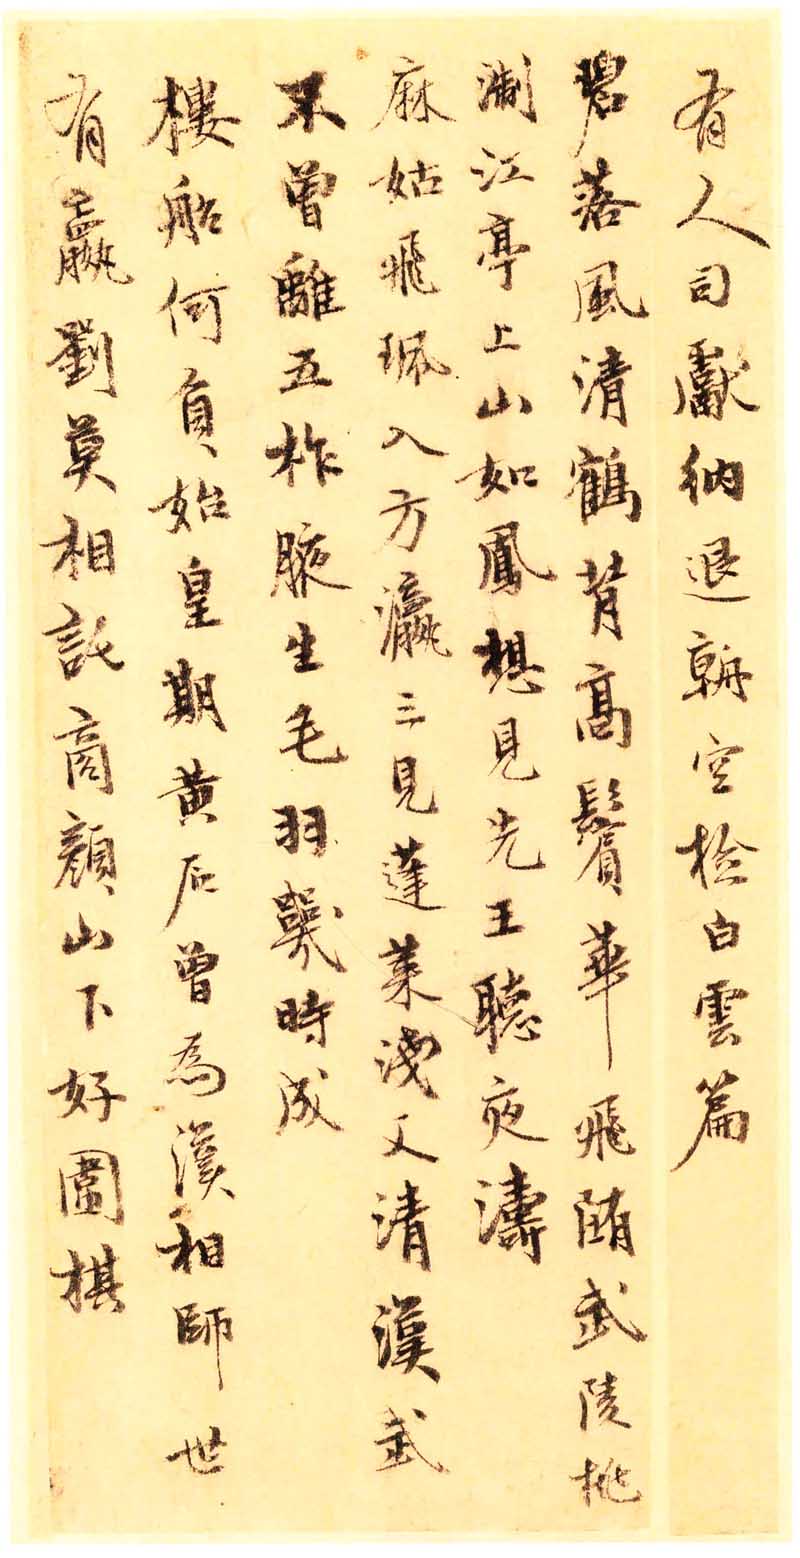 有人司獻納退朝空檢白雲篇
碧落風清鶴背高鬢華飛墮武陵桃
淛江亭上山如鳳想見先王聽夜濤
麻姑飛珮入方瀛三見蓬萊淺又清漢武
不曾離五柞腋生毛羽幾時成
樓船何負始皇期黃石曾為漢相師世
有嬴劉莫相託商顏山下好圍棋